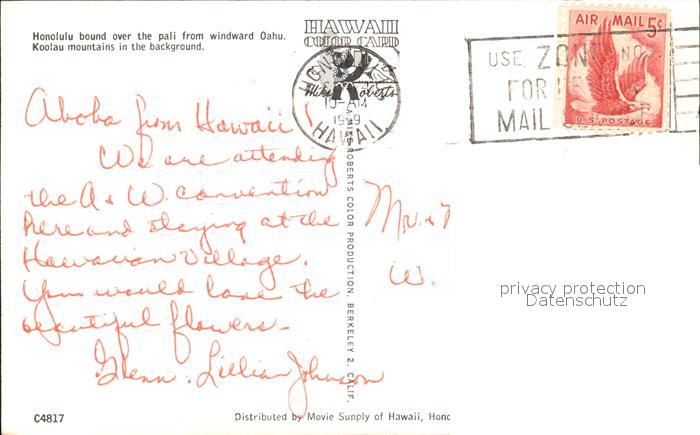 Honolulu bound over the pali from windward Oahu.
Koolau mountains in the background.
HAWAII
COLOR CARD
Mike Roberts
HONOLULU
10-AM
1959
HAWAII
AIR MAIL 5¢
U.S. POSTAGE
USE ZONE NO.
FOR
MAIL
Aloha from Hawaii!
We are attending
the A & W. convention
here and staying at the
Hawaiian Village.
You would love the
beautiful flowers—
Glenn . Lillian Johnson
Mr. &
W.
A MIKE ROBERTS COLOR PRODUCTION, BERKELEY 2, CALIF.
privacy protection
Datenschutz
C4817
Distributed by Movie Supply of Hawaii, Hono